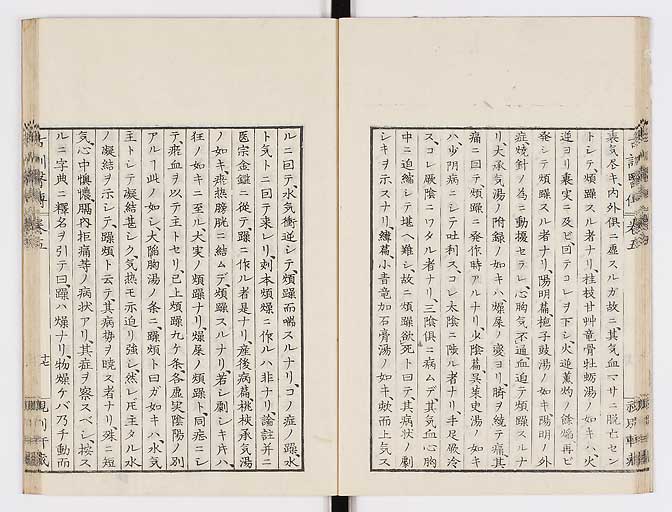 裏気尽キ、内外倶ニ虚スルガ故ニ、其気血マサニ脱セセン
トシテ、煩躁スル者ナリ、桂枝甘艸竜骨牡蛎湯ノ如キハ、火
逆ヨリ裏実ニ及ビ、因テコレヲ下シ、火逆薫灼ノ餘焔再ビ
発シテ煩躁スル者ナリ、陽明篇梔子豉湯ノ如キ陽明ノ外
症焼針ノ為ニ動擾セラレ、心胸気不通血迫テ煩躁スルナ
リ、大承気湯ノ附録ノ如キハ、燥屎ノ変ヨリ、臍ヲ繞テ痛、其
痛ニ因テ煩躁ニ発作時アルナリ、少陰篇呉茱萸湯ノ如キ
ハ少陰病ニシテ吐利ス、コレ太陰ニ陥ル者ナリ、手足厥冷
ス、コレ厥陰ニワタル者ナリ、三陰倶ニ病ムデ、其気血心胸
中ニ迫縮シテ堪ヘ難シ、故ニ煩躁欲死ト曰テ、其病状ノ劇
シキヲ示スナリ、嗽篇小青竜加石膏湯ノ如キ、欬而上気ス
ルニ因テ、水気衝逆シテ、煩躁而喘スルナリ、コノ症ノ躁、水
ト気トニ因テ来レリ、刻本煩燥ニ作ルハ非ナリ、論註并ニ
医宗金鑑ニ従テ、躁ニ作ル者是ナリ、産後病篇、桃核承気湯
ノ如キ、瘀熱膀胱ニ結ムデ、煩躁スルナリ、若シ劇シキ片ハ、
狂ノ如キニ至ル、大実ノ煩躁ナリ、燥屎ノ煩躁ト、同症ニシ
テ瘀血ヲ以テ主トセリ、已上煩躁九ケ条、各虚実陰陽ノ別
アルヿ此ノ如シ、大陥胸湯ノ条ニ、躁煩ト曰ガ如キハ、水気
主トシテ凝結甚シク、気熱モ亦迫リ強シ、然レ𪜈主タル水
ノ凝結ヲ示シテ、躁煩ト云テ、其病勢ヲ暁ス者ナリ、殊ニ短
気、心中懊憹、膈内拒痛等ノ病状アリ、其症ヲ察スベシ、按ス
ルニ字典ニ釋名ヲ引テ曰、躁ハ燥ナリ、物燥ケバ乃チ動而
十七